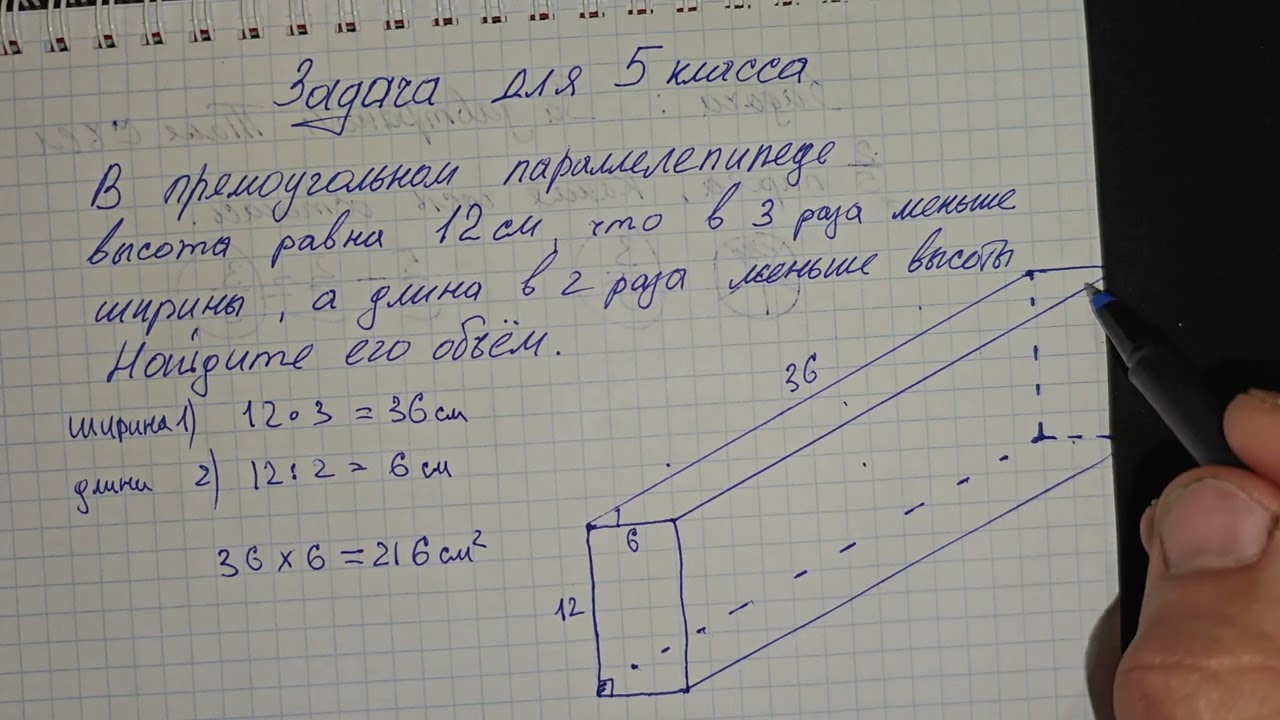 Задача для 5 класса
В прямоугольном параллелепипеде
высота равна 12 см, что в 3 раза меньше
ширины, а длина в 2 раза меньше высоты
Найдите его объём.
ширина 1) 12 • 3 = 36 см
длини 2) 12 : 2 = 6 см
36 × 6 = 216 см²
36
6
12